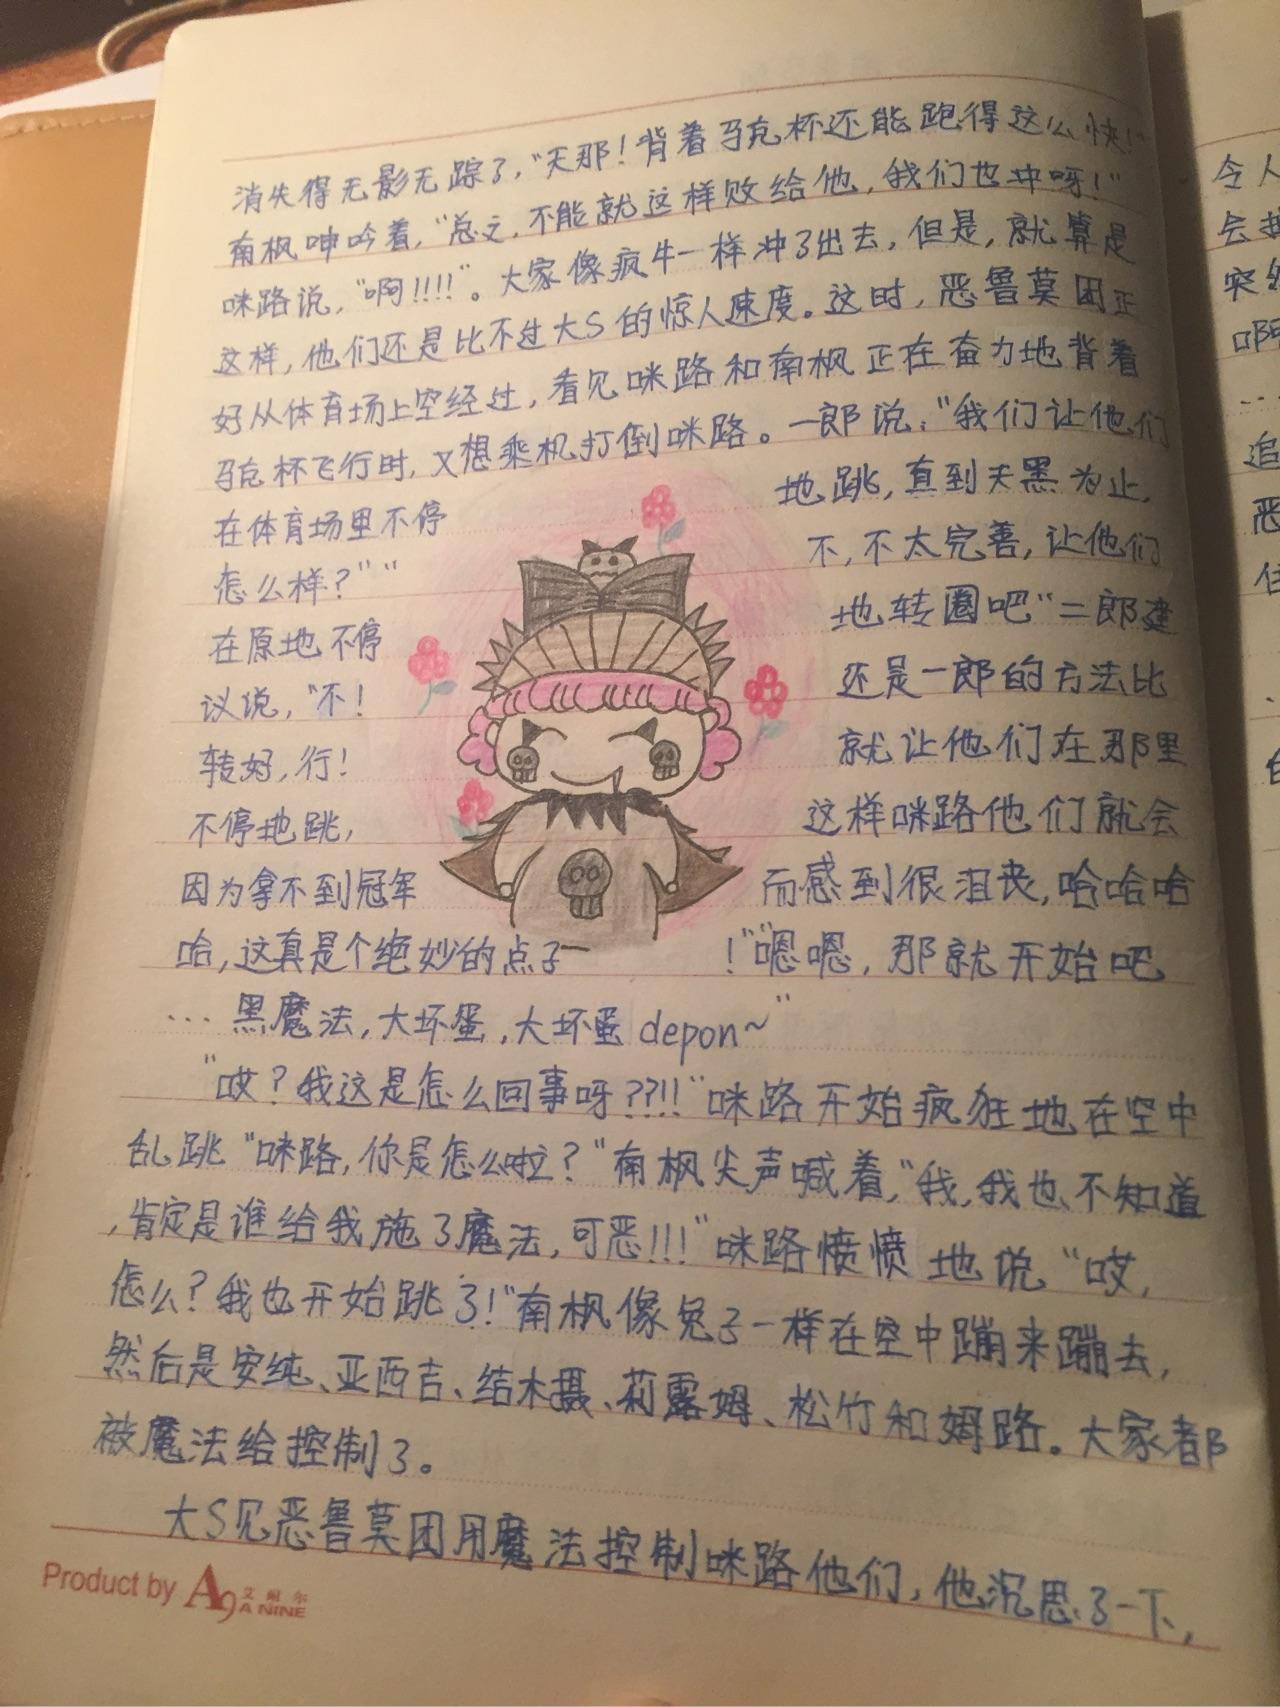 消失得无影无踪了，“天那！背着马克杯还能跑得这么快！”
南枫呻吟着，“总之，不能就这样败给他，我们也冲呀！”
咪路说，“啊!!!!”。大家像疯牛一样冲了出去，但是，就算是
这样，他们还是比不过大S的惊人速度。这时，恶鲁莫团正
好从体育场上空经过，看见咪路和南枫正在奋力地背着
马克杯飞行时，又想乘机打倒咪路。一郎说：“我们让他们
在体育场里不停 地跳，直到天黑为止，
怎么样？”“ 不，不太完善，让他们
在原地不停 地转圈吧“二郎建
议说，“不！ 还是一郎的方法比
转好，行！ 就让他们在那里
不停地跳， 这样咪路他们就会
因为拿不到冠军 而感到很沮丧，哈哈哈
哈，这真是个绝妙的点子一 ！”“嗯嗯，那就开始吧
… 黑魔法，大坏蛋，大坏蛋depon~”
“哎？我这是怎么回事呀??!!”咪路开始疯狂地在空中
乱跳“咪路，你是怎么啦？”南枫尖声喊着，“我，我也不知道
，肯定是谁给我施了魔法，可恶!!!”咪路愤愤地说“哎，
怎么？我也开始跳了！”南枫像兔子一样在空中蹦来蹦去，
然后是安纯、亚西吉、结木摄、莉露姆、松竹和姆路。大家都
被魔法给控制了。
大S见恶鲁莫团用魔法控制咪路他们，他沉思了一下，
Product by A9 艾耐尔 A NINE
令人
突然
啊
…
追
恶
住